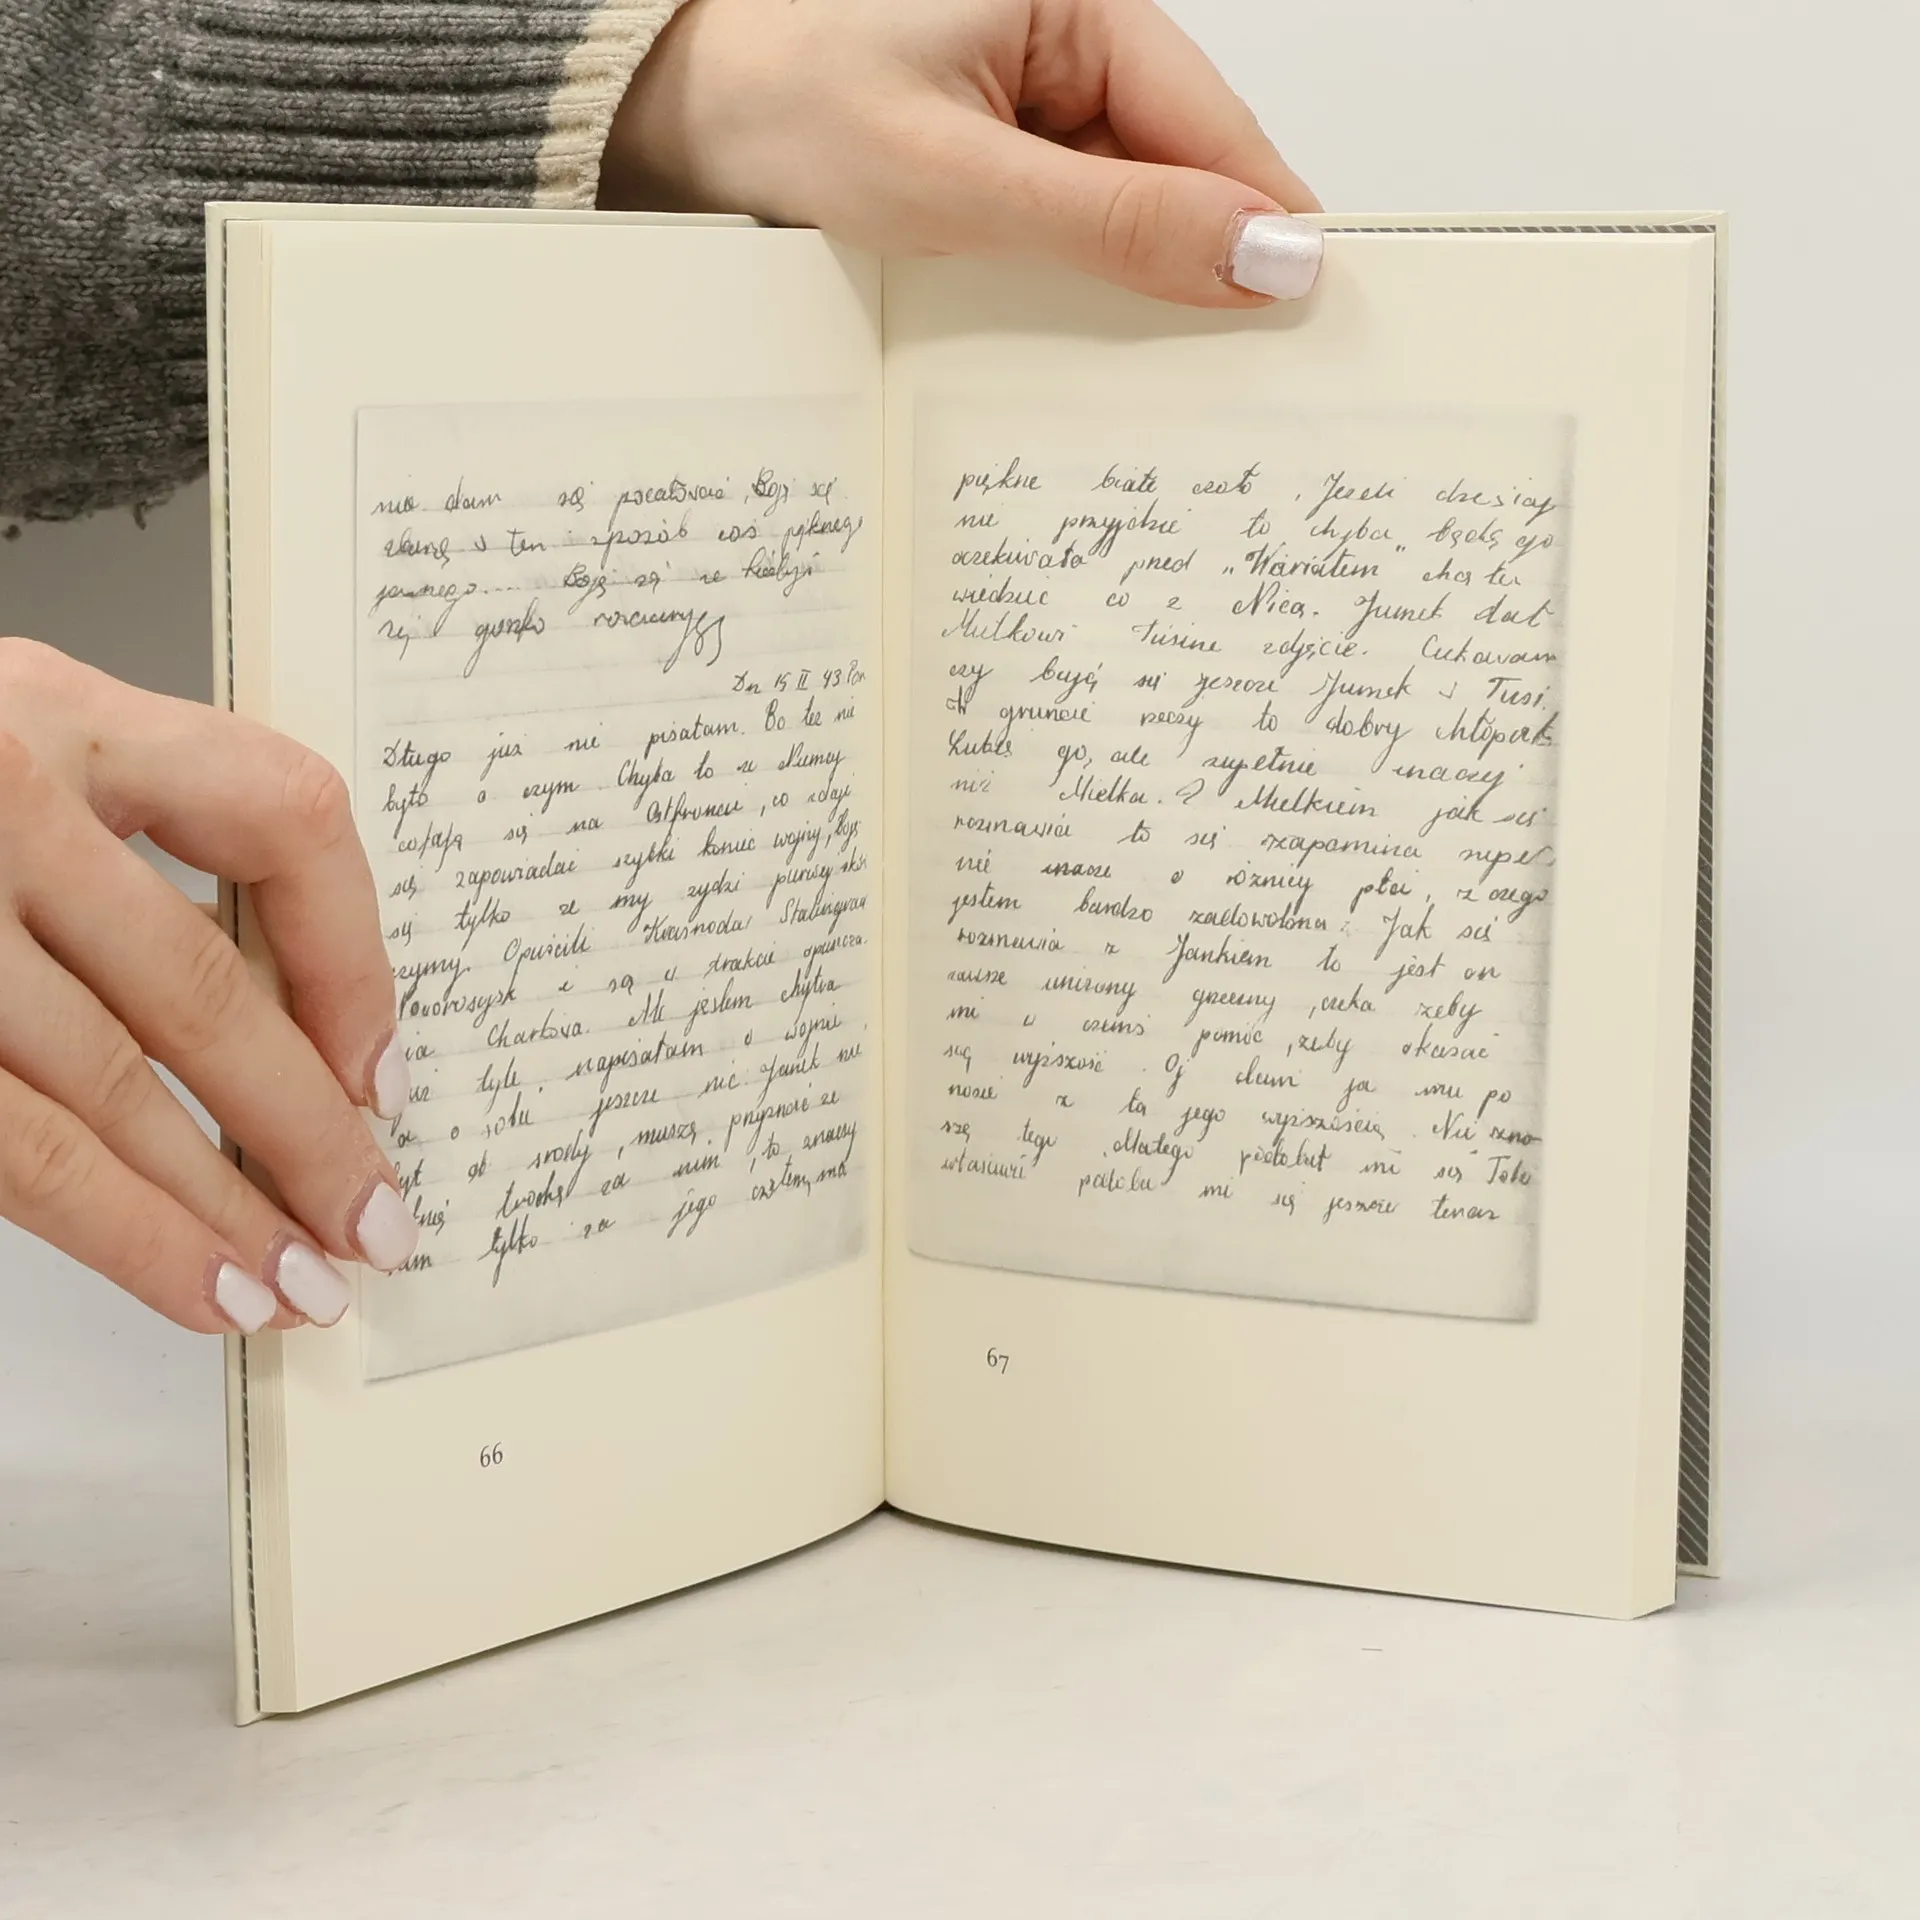 nie dam się pocałować, Boję się
w ten sposób coś pięknego
Boję się że
gorzko
Dn 15 II 43 Pon
Długo już nie pisałam. Bo też nie
było o czym. Chyba to że Niemcy
cofają się na Ostfroncie, co zdaje
się zapowiadać szybki koniec wojny, Boję
się tylko ze my zydzi pierwej skoń
czymy. Opuścili Krasnodar Stalingrad
Noworosyjsk i są w trakcie opuszcza
ia Charkowa. Ale jestem chytra
tyle napisałam o wojnie,
a o sobie jeszcze nic. Janek nie
był od srody, muszę przyznać ze
knię trochę za nim, to znaczy
am tylko za jego czołem, ma
piękne białe czoło. Jezeli dzesiaj
nie przyjdzie to chyba będę go
oczekiwała pred „Wariatem" chcę tu
wiedzieć co z Nicą. Jumek dał
Mietkowi Tusine zdjęcie. Ciekawam
czy bują się jeszcze Jumek i Tusi.
W gruncie rzeczy to dobry chłopak
Lubię go, ale zupełnie inaczej
niż Mietka. Z Mietkiem jak się
rozmawia to się zapomina zupeł
nie o różnicy płci, z czego
jestem bardzo zadowolona. Jak się
rozmawia z Jankiem to jest on
zawsze unizony grzeczny, czeka zeby
mi w czemś pomóc, zeby okazać
swą wyzszość. Oj dam ja mu po
nosie z tą jego wyzszością. Nie zno
szę tego dlatego podobał mi się Tolo
własiwie podoba mi się jeszcze teraz
66
67